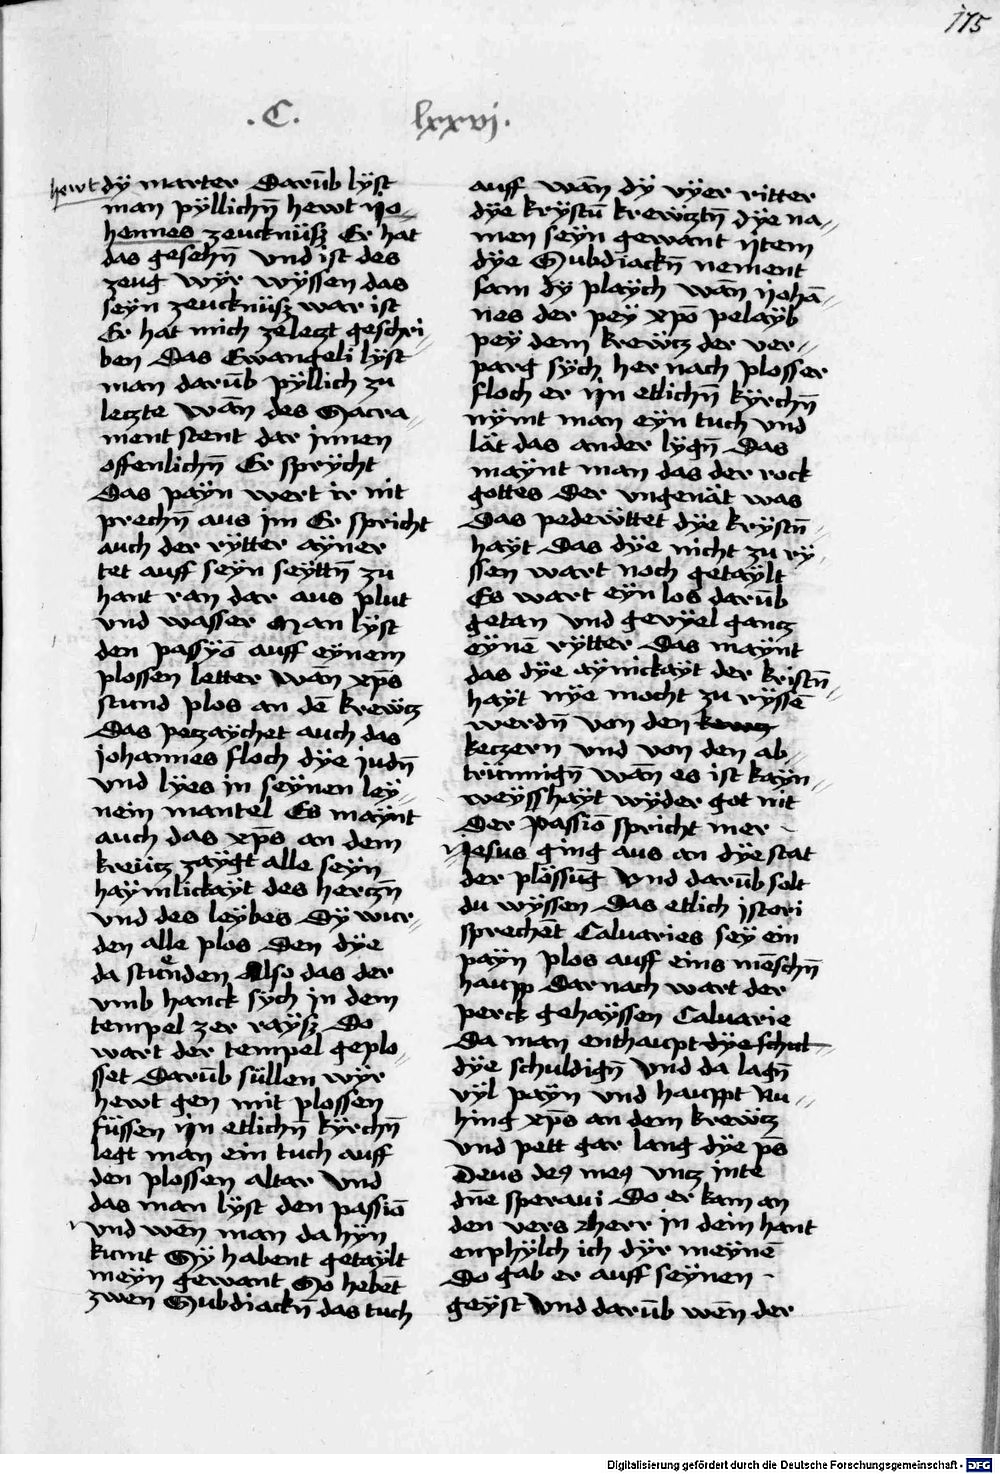 175
.C. lxxvj.
hewt
dÿ marter Darūb lÿst
man pÿllichn̄ hewt Jo
hennes zeucknüsz Er hat
das gesehn̄ vnd ist des
zeug wÿr wÿssen das
seÿn zeucknüsz war ist
Er hat mich zeletzt geschri
ben Das Ewangeli lÿst
man darūb pÿllich zu
letzte wān des Sacra
ment stent dar jnnen
offenlichn̄ Er sprÿcht
Das paÿn wert ir nit
prechn̄ aus im Er spricht
auch der rÿtter aÿner
tet auff seÿn seÿttn̄ zu
hant ran dar aus plut
vnd wasser Man lÿst
den passÿō auff eÿnem
plossen letter wān xp̄s
stund plos an dē krewtz
Das petzaÿchet auch das
johannes floch dÿe judn̄
vnd lÿes in seÿnen leÿ
nein mantel Es maÿnt
auch das xp̄s an dem
kreütz zaÿgt alle seÿn
haÿmlickaÿt des hertzn̄
vnd des leÿbes Dÿ wur
den alle plos Den dÿe
da stuenden Also das der
vmb hanck sÿch in dem
tempel zer raÿsz Do
wart der tempel geplo
sset Darūb süllen wÿr
hewt gen mit plossen
füssen jn etlichn̄ kÿrchn̄
legt man ein tuch auff
den plossen altar vnd
das man lÿst den passiō
vnd wēn man da hÿn
kumt Sÿ habent getaÿlt
meÿn gewant So hebēt
zwen Subdiackn̄ das tuch
auff wān dÿ vÿer ritter
dÿe krÿstū krewtztn̄ dÿe na
men seÿn gewant jtem
dÿe Subdiackn̄ nement
sam dÿ plaÿch wān johā
nes der peÿ xpō pelaÿb
peÿ dem krewtz der ver
parg sÿch her nach plosser
floch er jn etlichn̄ kÿrchn̄
nÿmt man eÿn tuch vnd
lāt das ander lygn̄ Das
maÿnt man das der rock
gottes Der vngenāt was
Das pedewttet dÿe krÿstn̄
haÿt Das dÿe nicht zu rÿ
ssen wart noch getaÿlt
Es wart eÿn los darūb
getan vnd gevÿel gantz
eÿnē rÿtter Das maÿnt
das dÿe aÿnickaÿt der kristn̄
haÿt nÿe mocht zu rÿssē
werdn̄ von den kewtz
ketzern vnd von den ab
trünnign̄ wān es ist kaÿn
weÿsshaÿt wÿder got nit
Der passiō spricht mer
Jesus ging aus an dÿe stat
der plössūg Vnd darūb solt
du wÿssen Das etlich jstori
sprechēt Caluaries seÿ ein
paÿn plos auff eins mēschn̄
haupp Darnach wart der
perck gehaÿssen Caluarie
Da man enthaupt dÿe schul
dÿe schuldign̄ vnd da lagn̄
vÿl paÿn vnd hauppt Nu
hing xp̄s an dem krewtz
vnd pett gar lang dÿe ps̄
Deus deꝰ meꝰ vntz jn te
dn̄e speraui Do er kam an
den vers herr in dein hant
enphÿlch ich dÿr meÿnē
Do gab er auff seÿnen
geÿst Vnd darūb wēn der
Digitalisierung gefördert durch die Deutsche Forschungsgemeinschaft - DFG